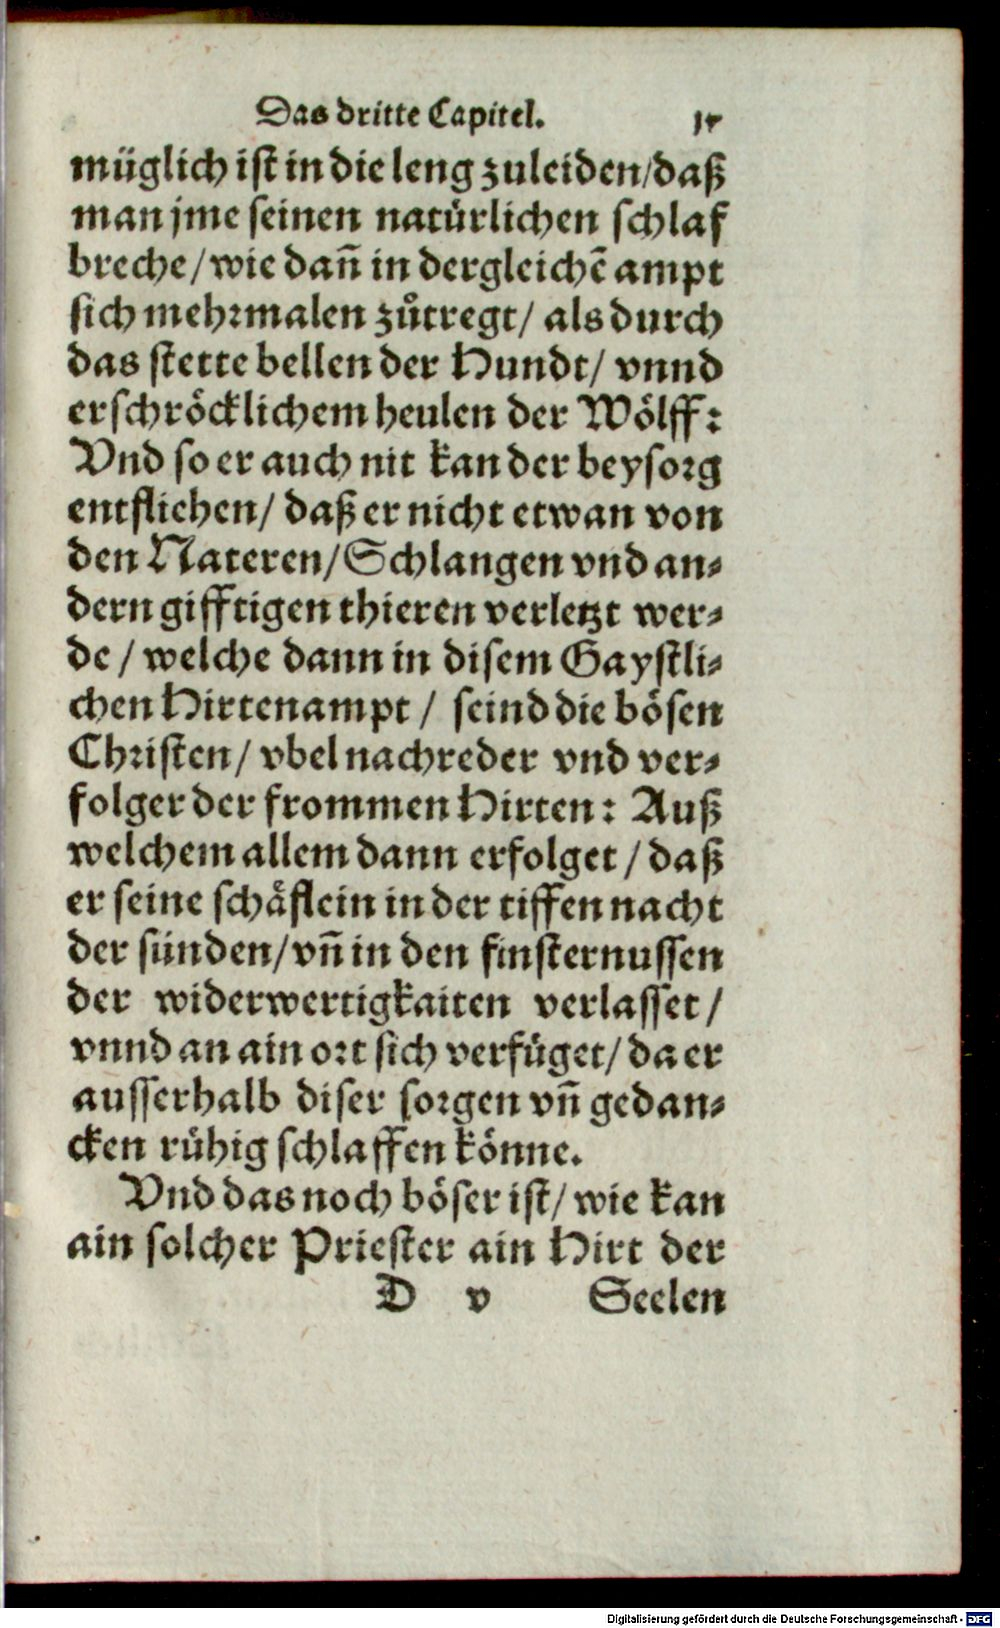 Das dritte Capitel.
müglich ist in die leng zuleiden/daß
man jme seinen natürlichen schlaf
breche/wie dañ in dergleichẽ ampt
sich mehrmalen zůtregt/ als durch
das stette bellen der Hundt/ vnnd
erschröcklichem heulen der Wölff:
Vnd so er auch nit kan der beysorg
entfliehen/ daß er nicht etwan von
den Nateren/Schlangen vnd an-
dern gifftigen thieren verletzt wer-
de / welche dann in disem Gaystli-
chen Hirtenampt / seind die bösen
Christen/ vbel nachreder vnd ver-
folger der frommen Hirten: Auß
welchem allem dann erfolget / daß
er seine schäflein in der tiffen nacht
der sünden/vñ in den finsternussen
der widerwertigkaiten verlasset/
vnnd an ain ort sich verfüget/ da er
ausserhalb diser sorgen vñ gedan-
cken rühig schlaffen könne.
Vnd das noch böser ist/ wie kan
ain solcher Priester ain Hirt der
D v Seelen
Digitalisierung gefördert durch die Deutsche Forschungsgemeinschaft - DFG